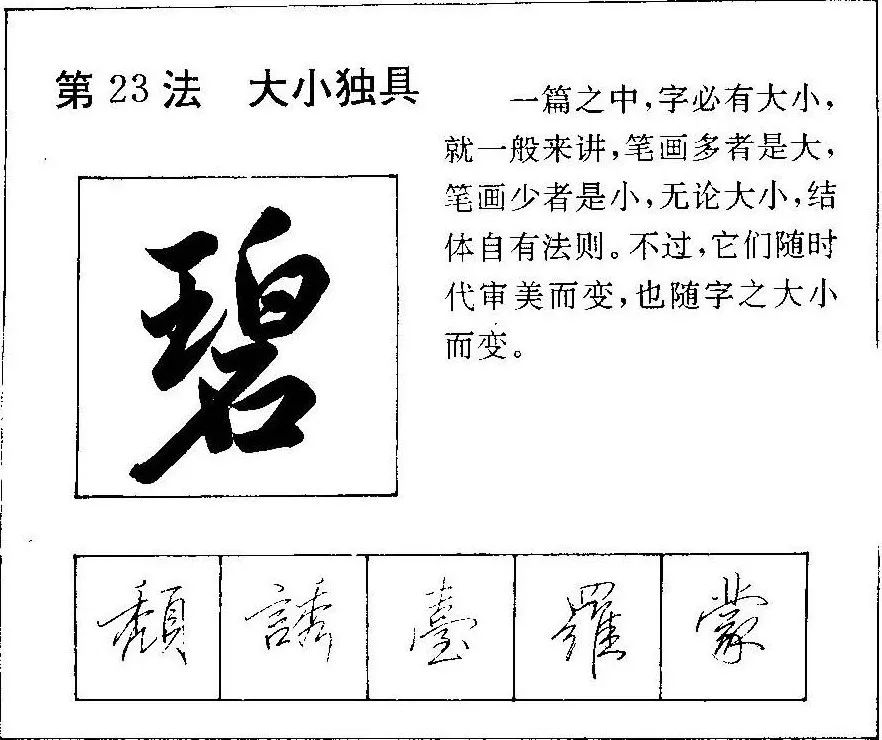 第23法 大小独具
一篇之中，字必有大小，
就一般来讲，笔画多者是大，
笔画少者是小，无论大小，结
体自有法则。不过，它们随时
代审美而变，也随字之大小
而变。
碧
頹 誘 臺 羅 蒙